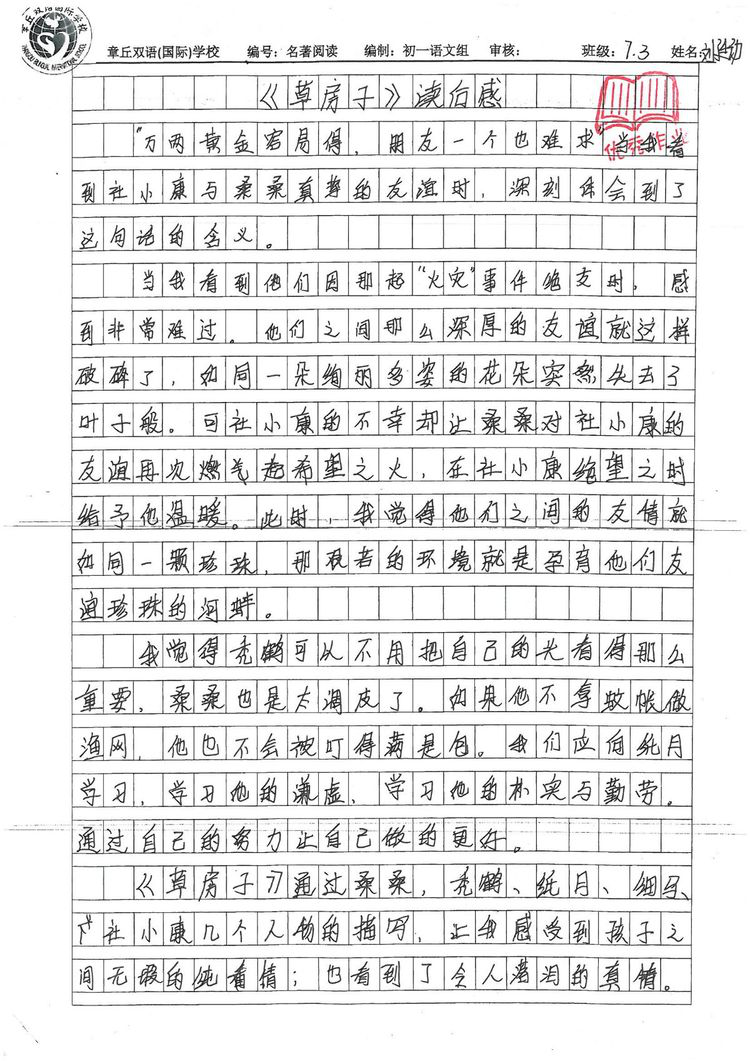 章丘双语(国际)学校 编号：名著阅读 编制：初一语文组 审核： 班级：7.3 姓名：刘
《草房子》读后感
“万两黄金容易得，朋友一个也难求”当我看
到杜小康与桑桑真挚的友谊时，深刻体会到了
这句话的含义。
当我看到他们因那起“火灾”事件绝交时，感
到非常难过。他们之间那么深厚的友谊就这样
破碎了，如同一朵绚丽多姿的花朵突然失去了
叶子般。可杜小康的不幸却让桑桑对杜小康的
友谊再次燃气起希望之火，在杜小康绝望之时
给予他温暖。此时，我觉得他们之间的友情就
如同一颗珍珠，那艰苦的环境就是孕育他们友
谊珍珠的河蚌。
我觉得秃鹤可以不用把自己的光看得那么
重要，桑桑也是太调皮了。如果他不拿蚊帐做
渔网，他也不会被叮得满是包。我们应向纸月
学习，学习她的谦虚，学习她的朴实与勤劳。
通过自己的努力让自己做的更好。
《草房子》通过桑桑，秃鹤、纸月、细马、
杜小康几个人物的描写，让我感受到孩子之
间无瑕的纯真情；也看到了令人落泪的真情。
优秀作业